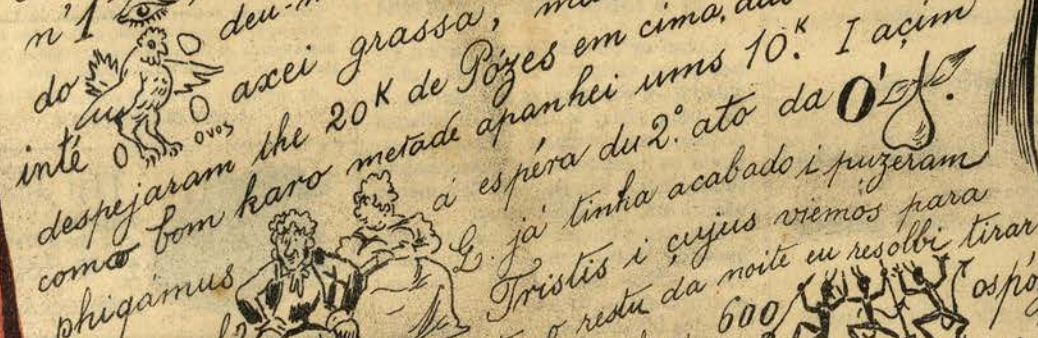 n'1 deu-
do axei grassa,
inté 0 0 0 ovos
despejaram lhe 20K de Pózes em cima,
como bom karo metade apanhei ums 10K. I açim
phigámus á espéra du 2.º ato da O'
E. já tinha acabado i puzeram
Tristis i çujus viemos para
o restu da noite eu resolbi tirar
600